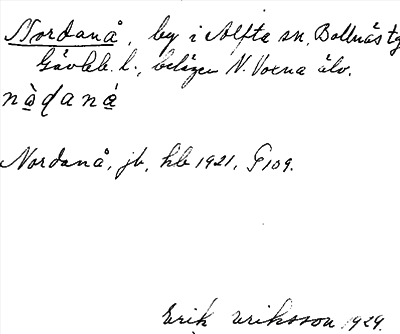 Nordanå, by i Alfta sn, Bollnäs tg
Gävleb. l., belägen N. Voxna älv.
nòdaná
Nordanå, jb, hlb 1921, F 109.
Erik Eriksson 1929.